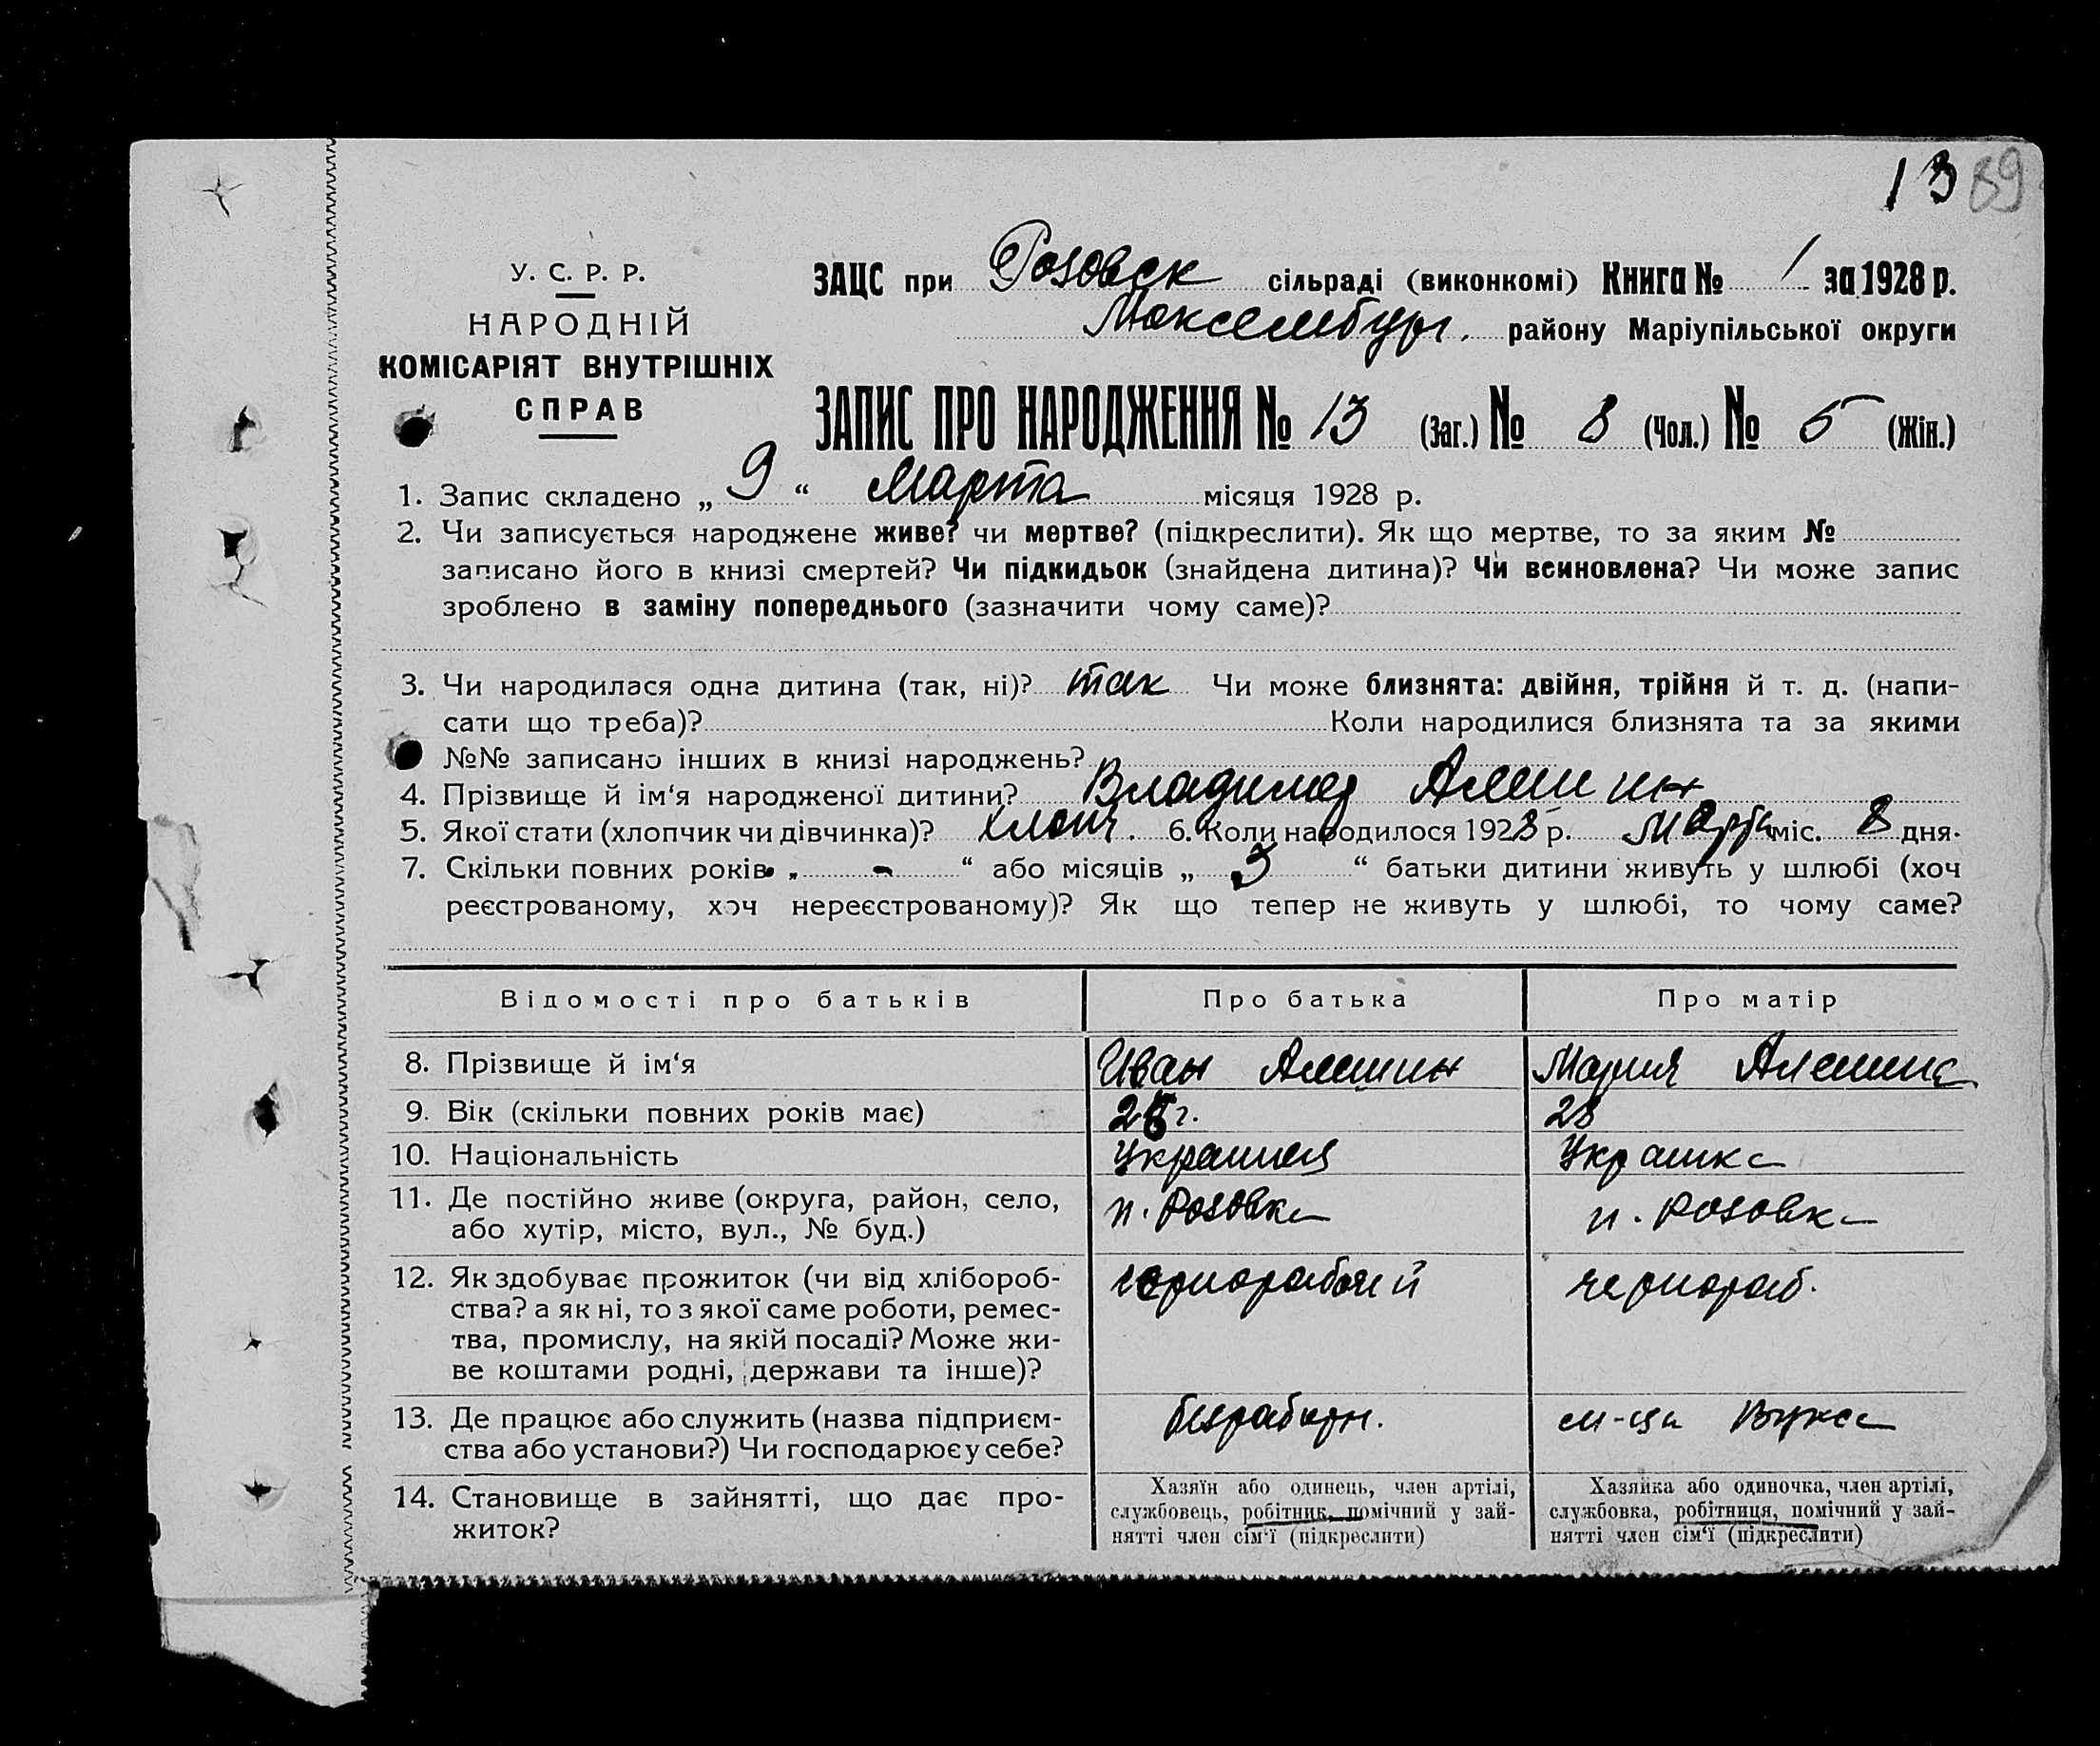 13 89
У. С. Р. Р.
НАРОДНІЙ
КОМІСАРІЯТ ВНУТРІШНІХ
СПРАВ
ЗАЦС при Розовск сільраді (виконкомі) Книга № 1 за 1928 р.
району Маріупільської округи
ЗАПИС ПРО НАРОДЖЕННЯ № 13 (Заг.) № 8 (Чол.) № 5 (Жін.)
1. Запис складено „ 9 “ Марта місяця 1928 р.
2. Чи записується народжене живе? чи мертве? (підкреслити). Як що мертве, то за яким №
записано його в книзі смертей? Чи підкидьок (знайдена дитина)? Чи всиновлена? Чи може запис
зроблено в заміну попереднього (зазначити чому саме)?
3. Чи народилася одна дитина (так, ні)? так Чи може близнята: двійня, трійня й т. д. (напи-
сати що треба)? Коли народилися близнята та за якими
№№ записано інших в книзі народжень?
4. Прізвище й ім‘я народженої дитини? Владимер Алешин
5. Якої стати (хлопчик чи дівчинка)? хлопч. 6. Коли народилося 1928 р. Марта міс. 8 дня.
7. Скільки повних років „ - “ або місяців „ “ батьки дитини живуть у шлюбі (хоч
реєстрованому, хоч нереєстрованому)? Як що тепер не живуть у шлюбі, то чому саме?
Відомості про батьків Про батька Про матір
8. Прізвище й ім‘я Иван Алешин Мария Алешина
9. Вік (скільки повних років має) г. 28
10. Національність украинец Украинка
11. Де постійно живе (округа, район, село, п. Розовка п. Розовка
або хутір, місто, вул., № буд.)
12. Як здобуває прожиток (чи від хлібороб- чернорабочий чернораб.
ства? а як ні, то з якої саме роботи, ремес-
тва, промислу, на якій посаді? Може жи-
ве коштами родні, держави та інше)?
13. Де працює або служить (назва підприєм- безработн.
ства або установи?) Чи господарює у себе?
14. Становище в зайнятті, що дає про- Хазяїн або одинець, член артілі, Хазяйка або одиночка, член артілі,
житок? службовець, робітник, помічний у зай- службовка, робітниця, помічний у зай-
нятті член сім‘ї (підкреслити) нятті член сім‘ї (підкреслити)